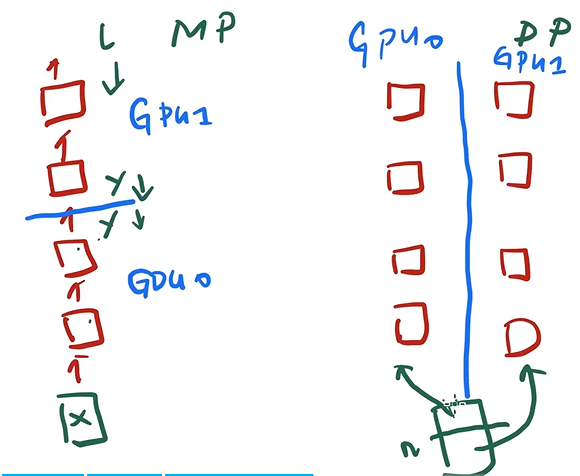 L MP
GPU1
Y
Y
GPU0
X
GPU0
DP
GPU1
n